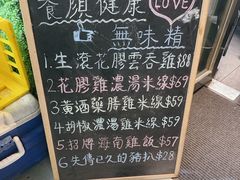 養顏健康
LOVE
無味精
1.生滾花膠雲吞雞$88
2.花膠雞濃湯米線$69
3.黃酒藥膳雞米線$59
4.胡椒濃湯雞米線$59
5.招牌海南雞飯$57
6失傳已久的豬扒$28